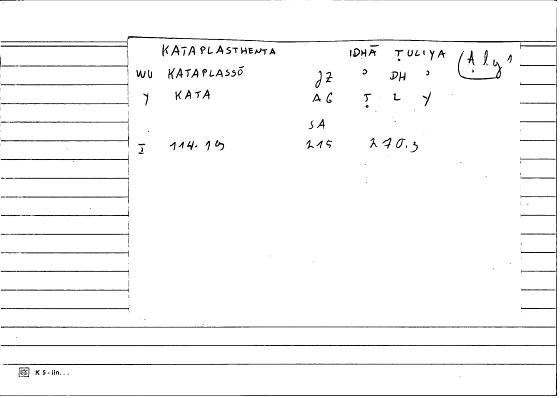 KATAPLASTHENTA IDHĀ ṬULIYA (Aly,
WU KATAPLASSŌ JZ ʾ DH ʾ
Y KATA AG Ṭ L Y
SA
I 114.19 215 270.3
K 5 - lin...